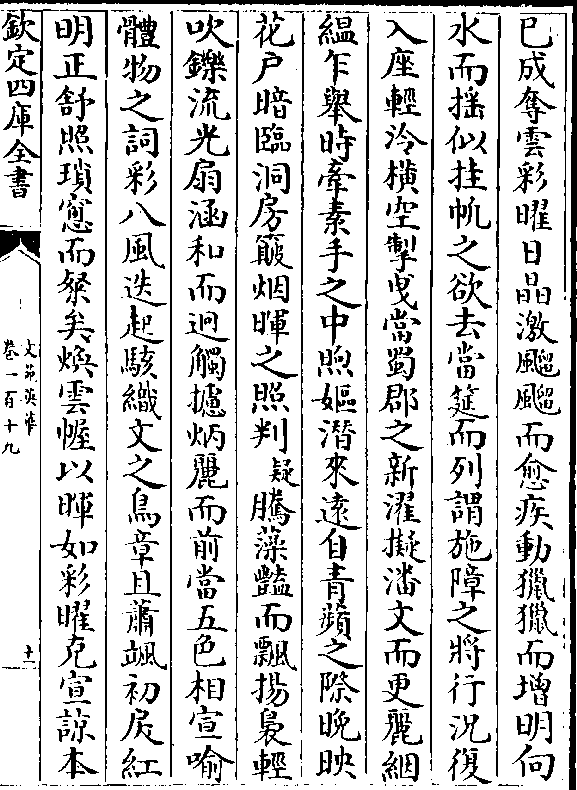 已成奪雲彩曜日晶激飀飀而愈疾動獵獵而增明向
水而揺似挂帆之欲去當筵而列謂施障之將行況復
入座輕泠横空掣曵當蜀郡之新濯擬潘文而更麗絪
緼乍舉時牽素手之中煦嫗潜來逺自青蘋之際晩映
花戸暗臨洞房簸烟暉之照判疑騰藻豔而飄揚裊輕
吹鑠流光扇涵和而迥觸攄炳麗而前當五色相宣喻
體物之詞彩八風迭起駭織文之鳥章且蕭颯初戾紅
明正舒照瑣窻而粲矣煥雲幄以暉如彩曜克宣諒本
欽定四庫全書
文苑英華
卷一百十九
十一